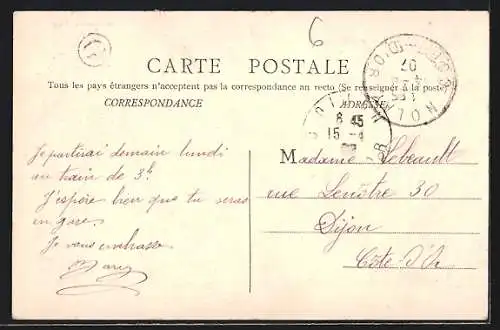 6
CARTE POSTALE
Tous les pays étrangers n'acceptent pas la correspondance au recto (Se renseigner à la poste)
CORRESPONDANCE
ADRESSE
NOLAY
COTE-D'OR
07
6 45
15 -4
Je partirai demain lundi
au train de 3h
J'espère bien que tu seras
en gare.
Je vous embrasse
Madame Lebeault
rue Lenôtre 30
Dijon
Côte-d'Or